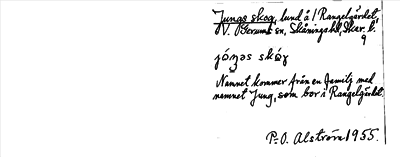 Jungs skog, lund å /Rangelgärdet,
V. Gerums sn, Skånings hd, Skar. l.
9
jóŋəs skóγ
Namnet kommer från en familj med
namnet Jung, som bor i Rangelgärdet.
P.-O. Alström 1955.